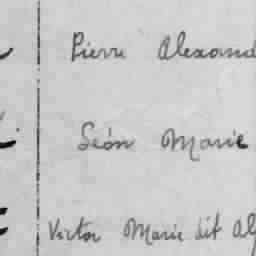 Pierre Alexand
Léon Marie
Victor Marie dit Alf